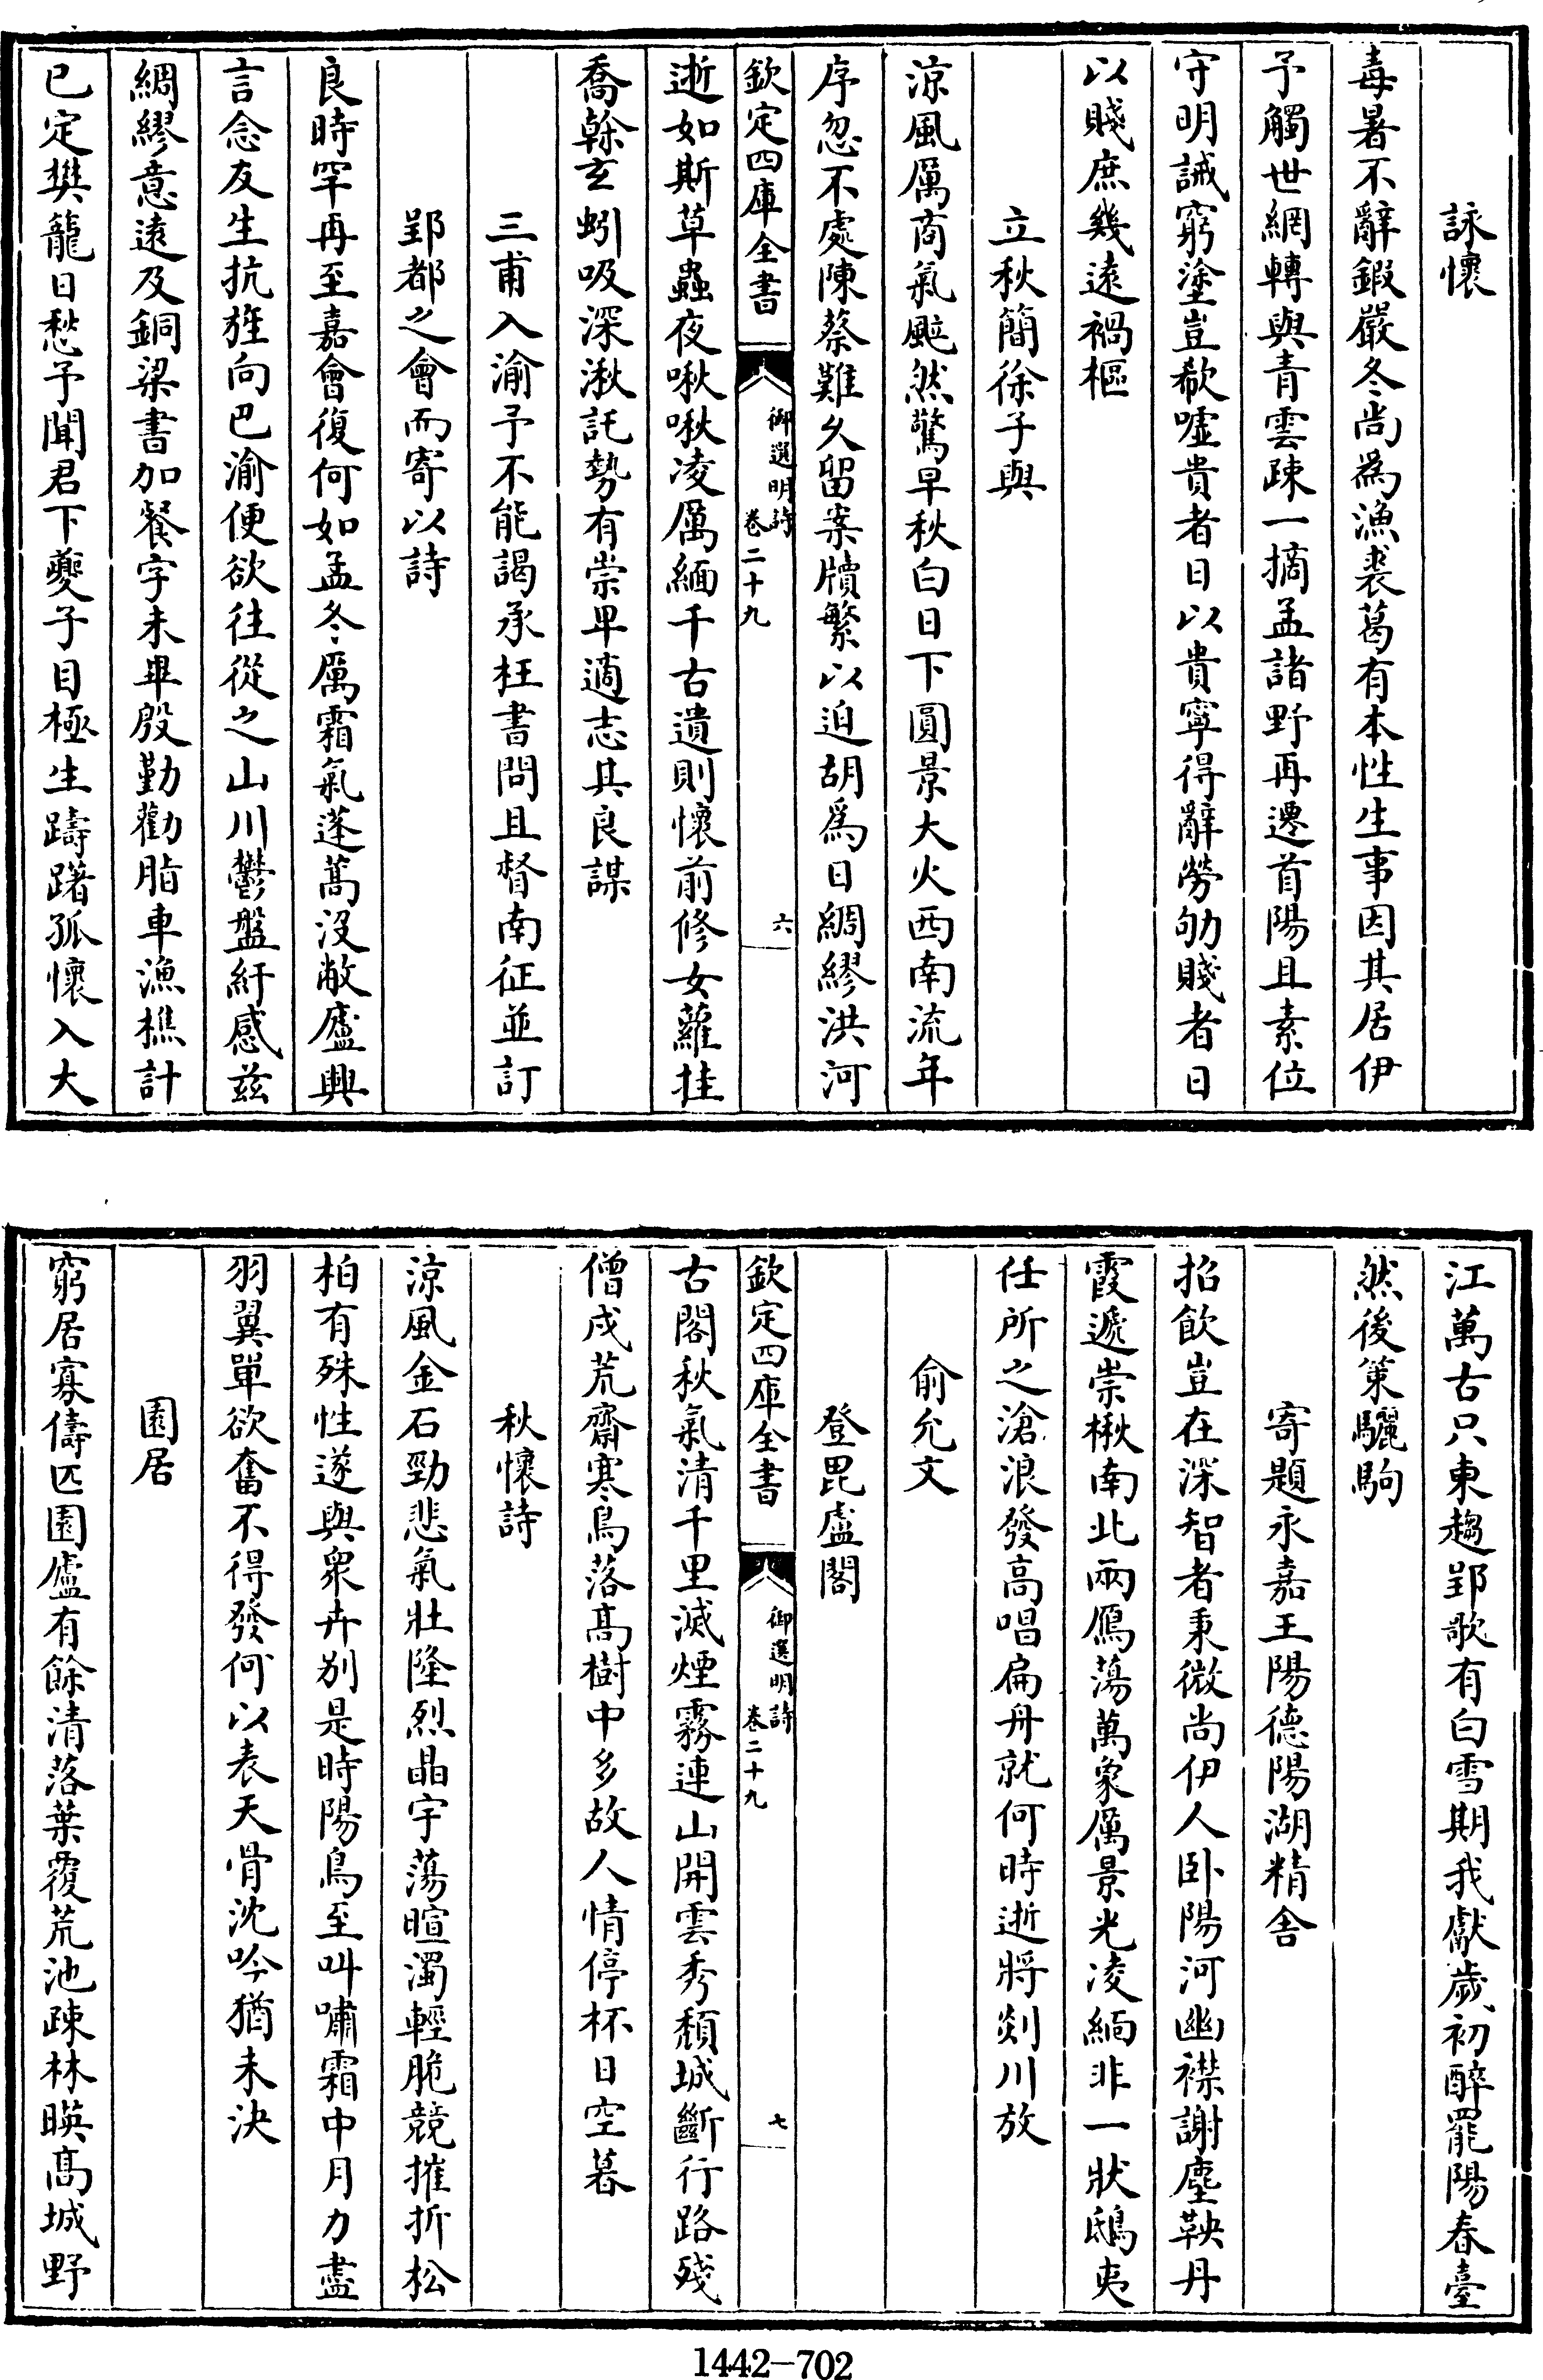 詠懷
毒暑不辭鍛嚴冬尚為漁裘葛有本性生事因其居伊
予觸世網轉與青雲疎一摘孟諸野再遷首陽且素位
守明誡窮塗豈欷噓貴者日以貴寧得辭勞劬賤者日
以賤庶幾遠禍樞
立秋簡徐子與
涼風厲商氣颰然驚早秋白日下圓景大火西南流年
序忽不處陳蔡難久留案牘繁以迫胡為日綢繆洪河
欽定四庫全書
御選明詩
卷二十九
六
逝如斯草蟲夜啾啾凌厲緬千古遺則懷前修女蘿挂
喬榦玄蚓吸深湫託勢有崇卑適志其良謀
三甫入渝予不能謁承枉書問且督南征並訂
郢都之會而寄以詩
良時罕再至嘉會復何如孟冬厲霜氣蓬蒿沒敝廬興
言念友生抗旌向巴渝便欲往從之山川鬱盤紆感茲
綢繆意遠及銅梁書加餐字未畢殷勤勸脂車漁樵計
已定樊籠日愁予聞君下夔子目極生躊躇孤懷入大
江萬古只東趨郢歌有白雪期我獻歲初醉罷陽春臺
然後策驪駒
寄題永嘉王陽德陽湖精舍
招飲豈在深智者秉微尚伊人卧陽河幽襟謝塵鞅丹
霞遞崇楸南北兩鴈蕩萬象厲景光凌緬非一狀鴟夷
任所之滄浪發高唱扁舟就何時逝將剡川放
俞允文
登毘盧閣
欽定四庫全書
御選明詩
卷二十九
七
古閣秋氣清千里滅煙霧連山開雲秀頹城斷行路殘
僧戍荒齋寒鳥落高樹中多故人情停杯日空暮
秋懷詩
涼風金石勁悲氣壯隆烈晶宇蕩暄濁輕脆競摧折松
柏有殊性遂與衆卉别是時陽鳥至叫嘯霜中月力盡
羽翼單欲奮不得發何以表天骨沈吟猶未決
園居
窮居寡儔匹園廬有餘清落葉覆荒池疎林暎高城野
1442-702